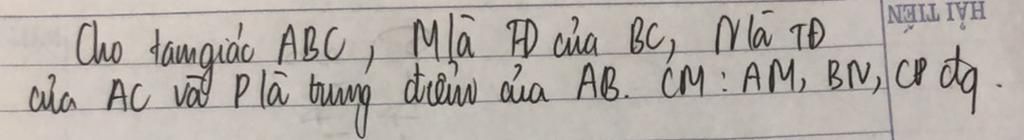 Cho tam giác ABC, M là TĐ của BC, N là TĐ
của AC và P là trung điểm của AB. CM : AM, BN, CP đq.
HẢI TIẾN